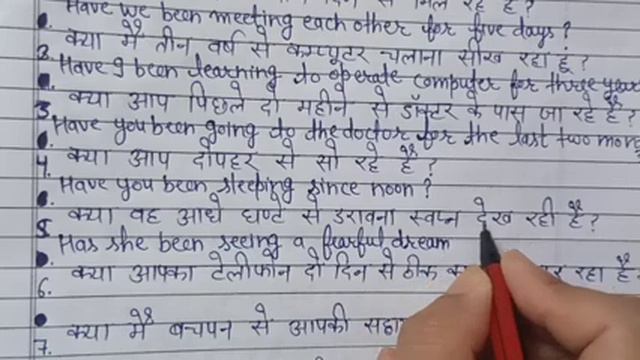 Have we been meeting each other for five days?
क्या मैं तीन वर्ष से कम्प्यूटर चलाना सीख रहा हूं?
2. Have I been learning to operate computer for three year
क्या आप पिछले दो महीने से डॉक्टर के पास जा रहे हैं?
3. Have you been going to the doctor for the last two
4. क्या आप दोपहर से सो रहे हैं?
Have you been sleeping since noon?
क्या वह आधे घण्टे से डरावना स्वप्न देख रही है?
Has she been seeing a fearful dream
क्या आपका टेलीफोन दो दिन से ठीक रहा है
6.
क्या मैं बचपन से आपकी
7.